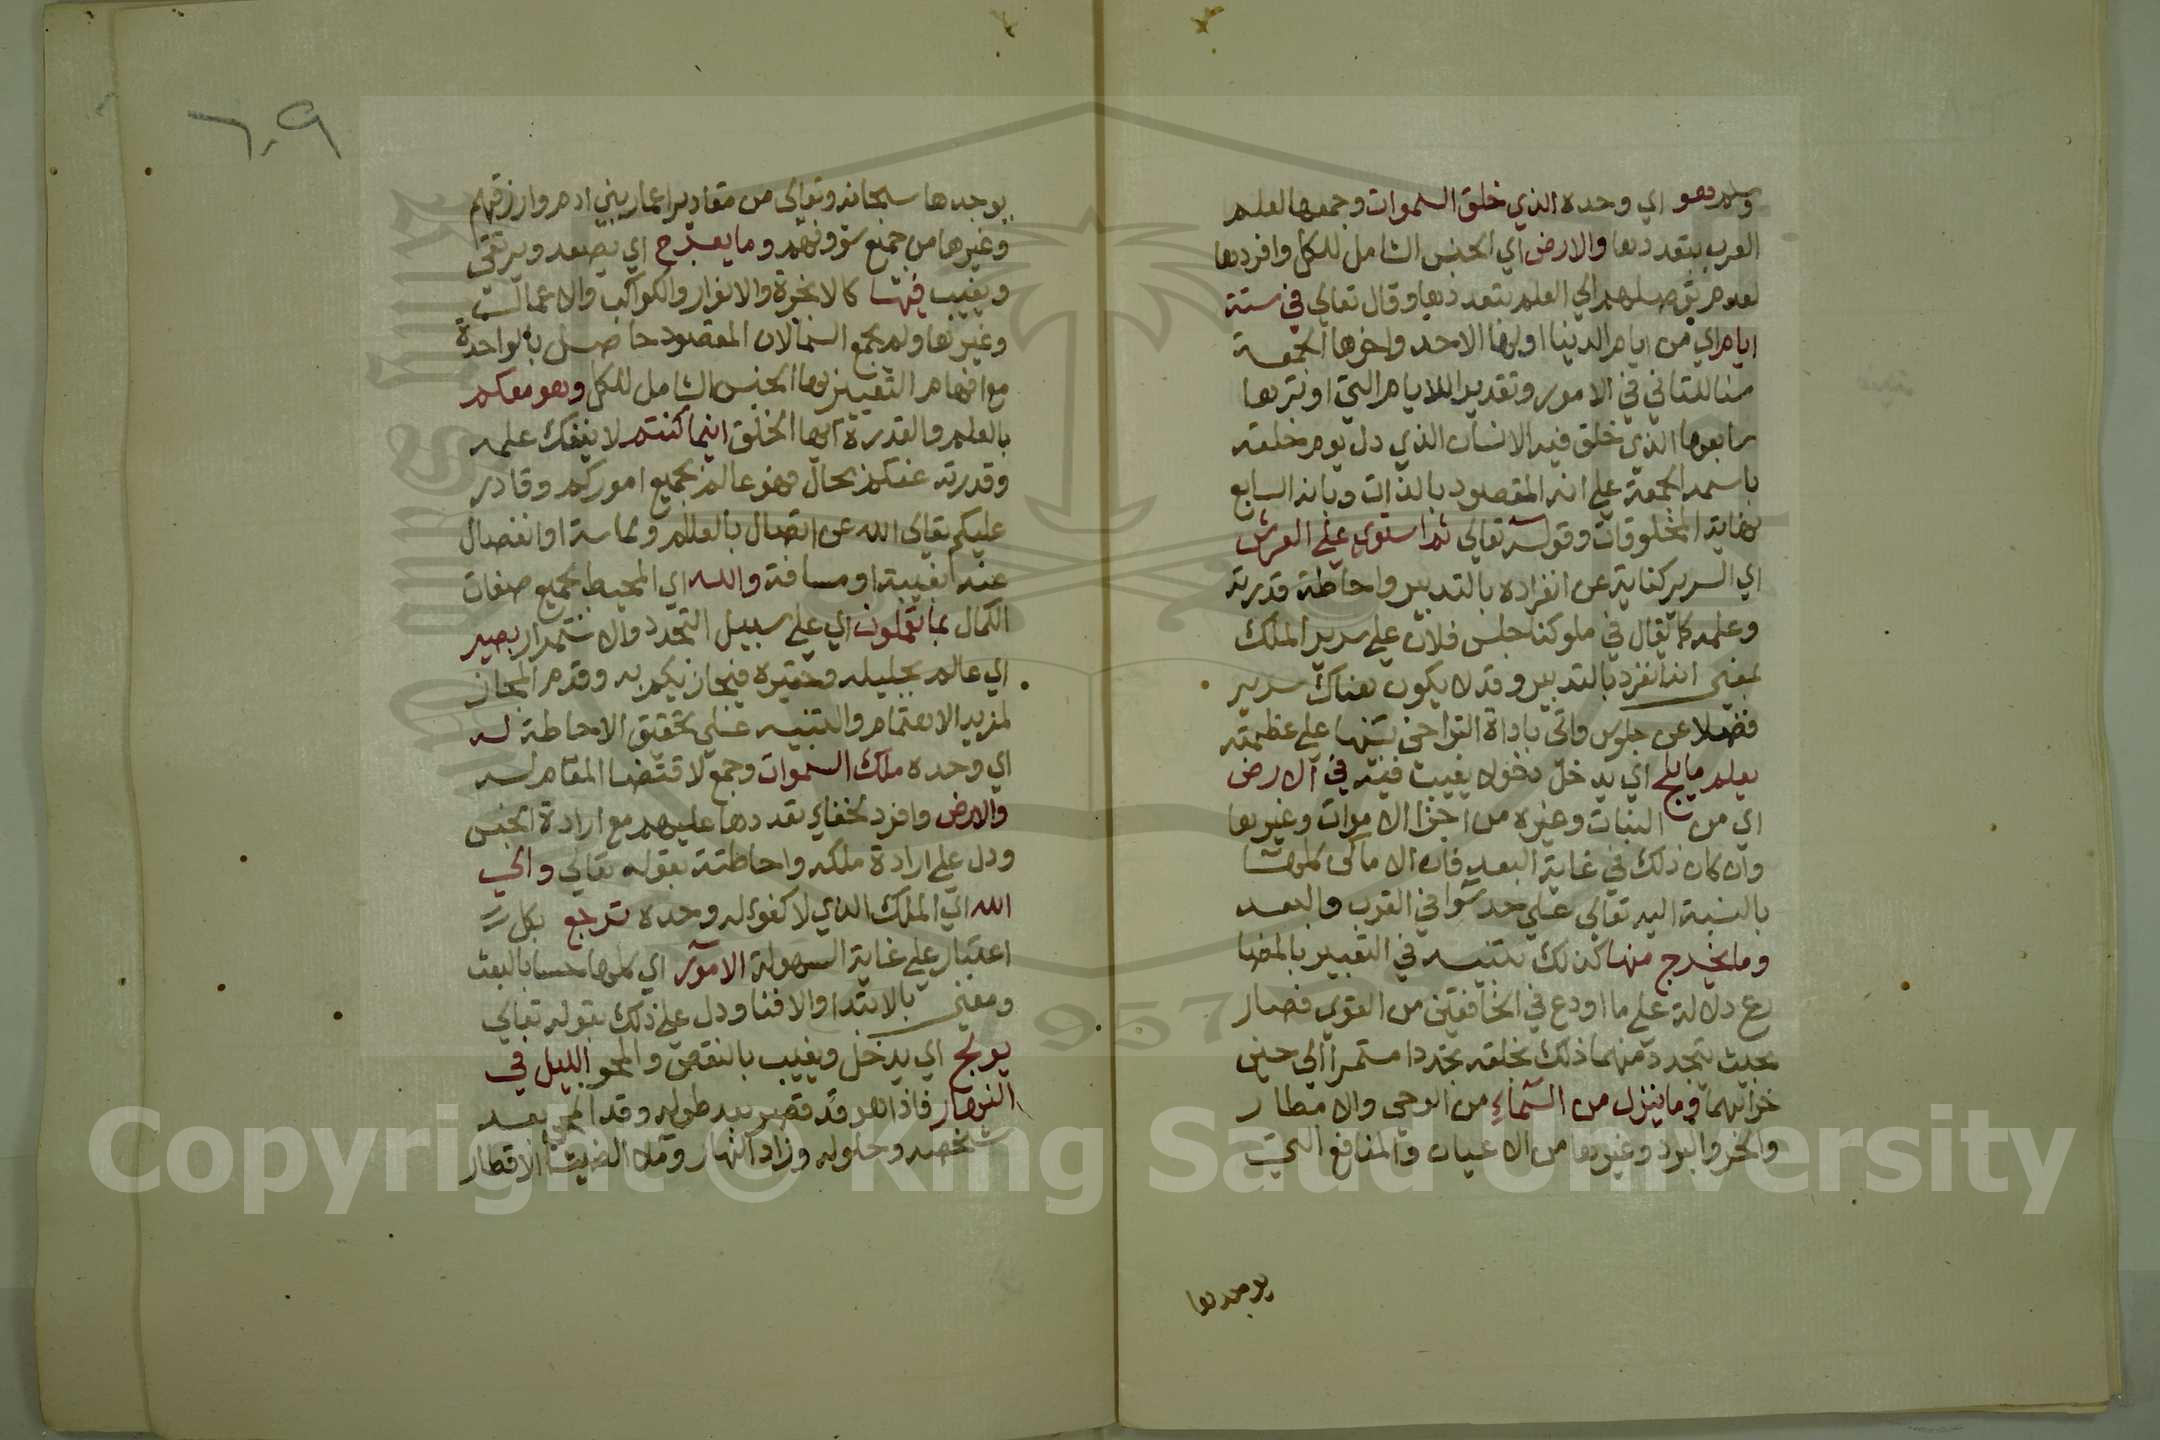 وسلم وهو اي وحده الذي خلق السموات وجمعها لعلم
العرب بتعددها والارض اي الجنس الشامل للكل وافردها
لعدم توصلهم الي العلم بتعددها وقال تعالي في ستة
ايام اي من ايام الدنيا اولها الاحد واخرها الجمعة
منا للتاني في الامور وتقديرا للايام التي اوترها
سابعها الذي خلق فيه الانسان الذي دل يوم خلقه
باسمه الجمعة علي انه المقصود بالذات وبانه السابع
نهاية المخلوقات وقوله تعالي ثم استوي علي العرش
اي السرير كناية عن انفراده بالتدبير واحاطة قدرته
وعلمه كما يقال في ملوكنا جلس فلان علي سرير الملك
بمعني انه انفرد بالتدبير وقد لا يكون هناك سرير
فضلا عن جلوس واتي باداة التراخي تنبيها علي عظمته
يعلم ما يلج اي يدخل دخولا يغيب فيه في الارض
اي من النبات وغيره من اجزا الاموات وغيرها
وان كان ذلك في غاية البعد فان الاماكن كلها
بالنسبة اليه تعالي علي حد سوا في القرب والبعد
وما يخرج منها كذلك تنبيه في التعبير بالمضا
رع دلالة علي ما اودع في الخافقين من القوي فصار
بحيث يتجدد منهما ذلك بخلقه تجددا مستمرا الي حين
خرابهما وما ينزل من السماء من الوحي والامطار
والحر والبرد وغيرها من الاعيان والمنافع التي
يوجدها
٦٠٩
يوجدها سبحانه وتعالى من مقادير اعمار بني ادم وارزاقهم
وغيرها من جميع شوونهم وما يعرج اي يصعد ويرتقي
ويغيب فيها كالابخرة والانوار والكواكب والاعمال
وغيرها ولم يجمع السما لان المقصود حاصل بالواحدة
مع افهام التعبير بها الجنس الشامل للكل وهو معكم
بالعلم والقدرة ايها الخلق اينما كنتم لا ينفك علمه
وقدرته عنكم بحال فهو عالم بجميع اموركم وقادر
عليكم تعالى الله عن اتصال بالعالم ومماسة او انفصال
عنه بغيبة او مسافة والله اي المحيط بجميع صفات
الكمال بما تعملون اي علي سبيل التجدد والاستمرار بصير
اي عالم بجليله وحقيره فيجازيكم به وقدم الجار
لمزيد الاهتمام والتنبيه علي تحقيق الاحاطة له
اي وحده ملك السموات وجمع لاقتضا المقام له
والارض وافرد لخفاء تعددها عليهم مع ارادة الجنس
ودل علي ارادة ملكه واحاطته بقوله تعالي والي
الله اي الملك الذي لا كفوء له وحده ترجع بكل
اعتبار علي غاية السهولة الامور اي كلها حسا بالبعث
ومعني بالابتدا والافنا ودل علي ذلك بقوله تعالي
يولج اي يدخل ويغيب بالنقص والمحو الليل في
النهار فاذا هو قد قصر بعد طوله وقد انمحي بعد
شخصه وحلوله وزاد النهار وملا الضيا الاقطار